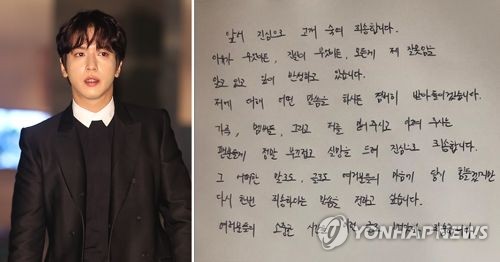 앞서 진심으로 고개 숙여 죄송합니다.
이유가 무엇이든, 진실이 무엇이든, 모든게 제 잘못임을
알고 있고 깊이 반성하고 있습니다.
저에 대해 어떤 말씀을 하시든 겸허히 받아들이겠습니다.
가족, 멤버들, 그리고 저를 믿어주시고 아껴 주시는
팬분들께 정말 부끄럽고 실망을 드려 진심으로 죄송합니다.
그 어떠한 말로도, 글로도 여러분들의 마음이 당시 힘들겠지만
다시 한번 죄송하다는 말씀을 전하고 싶습니다.
여러분들의 소중한
YONHAPNEWS